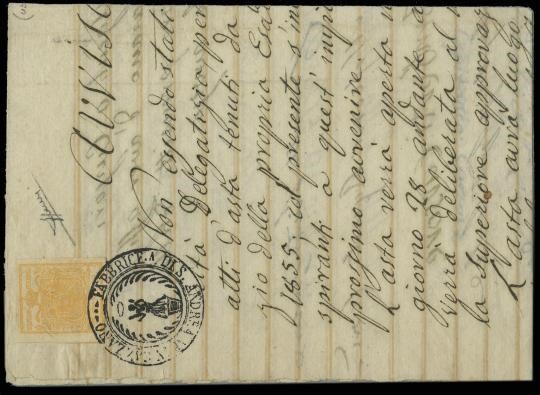 AVVISO
Non essendo stati
tà Delegatizia per
atti d'asta tenuti da
gio della propria Esat
1855 col presente s'in
spiranti a quest' impr
prossimo avvenire.
L'asta verrà aperta n
giorno 28 andante a
verrà deliberata al
la Superiore approvaz
L'asta avrà luogo
FABBRICE.A DI S. ANDREA